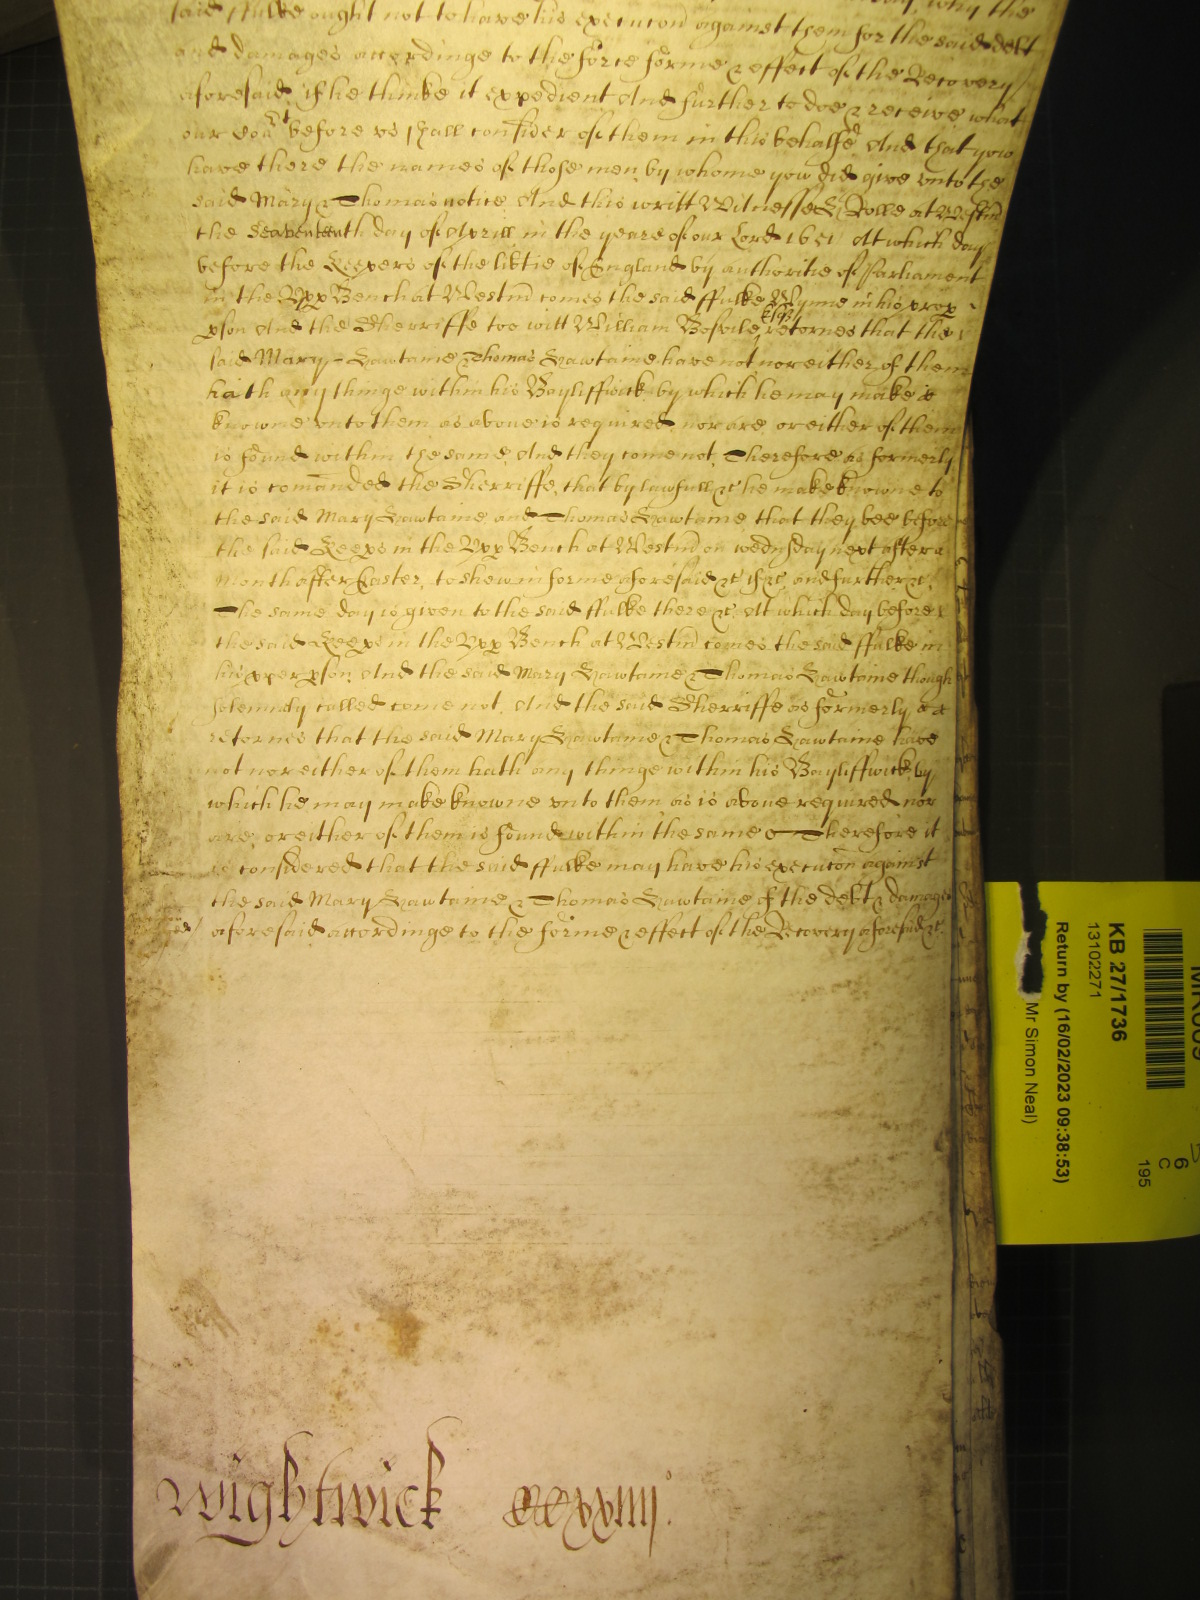 said ffulke ought not to have his execucon against them for the said debt
and damages accordinge to the force forme & effect of the Recovery
aforesaid, if he thinke it expedient And further to doe & receive what
our Court before vs shall consider of them in this behalfe And that yow
have there the names of those men by whome yow did give vnto the
said Mary & Thomas notice And this writt Witnesse H Rolle at Westm
the seaventeenth day of Aprill in the yeare of our Lord 1651 At which day
before the Keepers of the libtie of England by authoritie of Parliament
in the Vpp Bench at Westm comes the said ffulke Wynne in his prop
pson And the Sherriffe too witt William Bosvile Esqr retornes that the
said Mary Hawtaine & Thomas Hawtaine have not nor either of them
hath any thinge within his Bayliffwick by which he may make it
knowne vnto them as aboue is required nor are, or either of them
is found within the same, And they come not, Therefore as formerly
it is comanded the Sherriffe, that by lawfull &c he make knowne to
the said Mary Hawtaine and Thomas Hawtaine that they bee before
the said Keeps in the Vpp Bench at Westm on wednsday next after a
Month after Easter, to shew in forme aforesaid &c if &c, and further &c,
The same day is given to the said ffulke there &c, At which day before
the said Keeps in the Vpp Bench at Westm comes the said ffulke in
his pper pson, And the said Mary Hawtaine & Thomas Hawtaine though
solemnly called come not, And the said Sherriffe as formerly
retornes that the said Mary Hawtaine & Thomas Hawtaine have
not nor either of them hath any thinge within his Bayliffwick by
which he may make knowne vnto them as is aboue required nor
are, or either of them is found within the same Therefore it
is considered that the said ffulke may have his execucon against
the said Mary Hawtaine & Thomas Hawtaine of the debt & damages
aforesaid accordinge to the forme & effect of the Recovery aforesaid &c.
Wightwick
KB 27/1736
13102271
Return by (16/02/2023 09:38:53)
Mr Simon Neal)
6
C
195